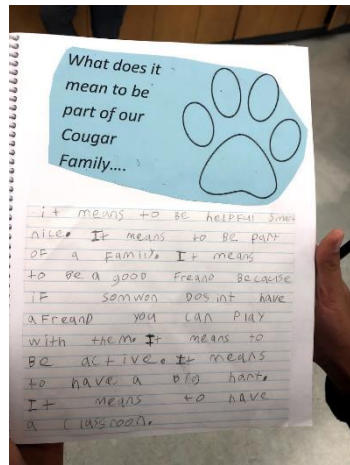 What does it
mean to be
part of our
Cougar
Family....
it means to BE helPFul Smart
nice. It means to Be part
OF a Family. It means
to Be a good Freand Because
iF somwon Dosint have
a Freand you can Play
with them. It means to
Be active. It means
to have a big hart.
It means to have
a classroon.